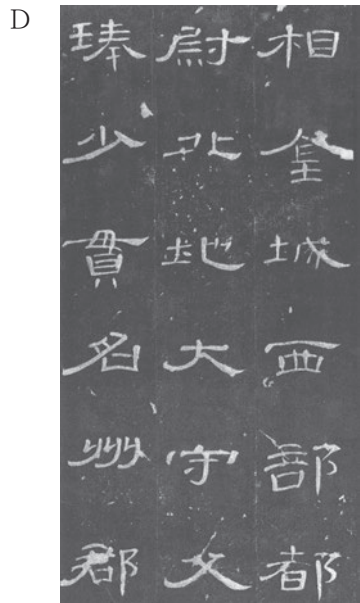 D
相金城西部都
尉北地大守父
琫少貫名州郡